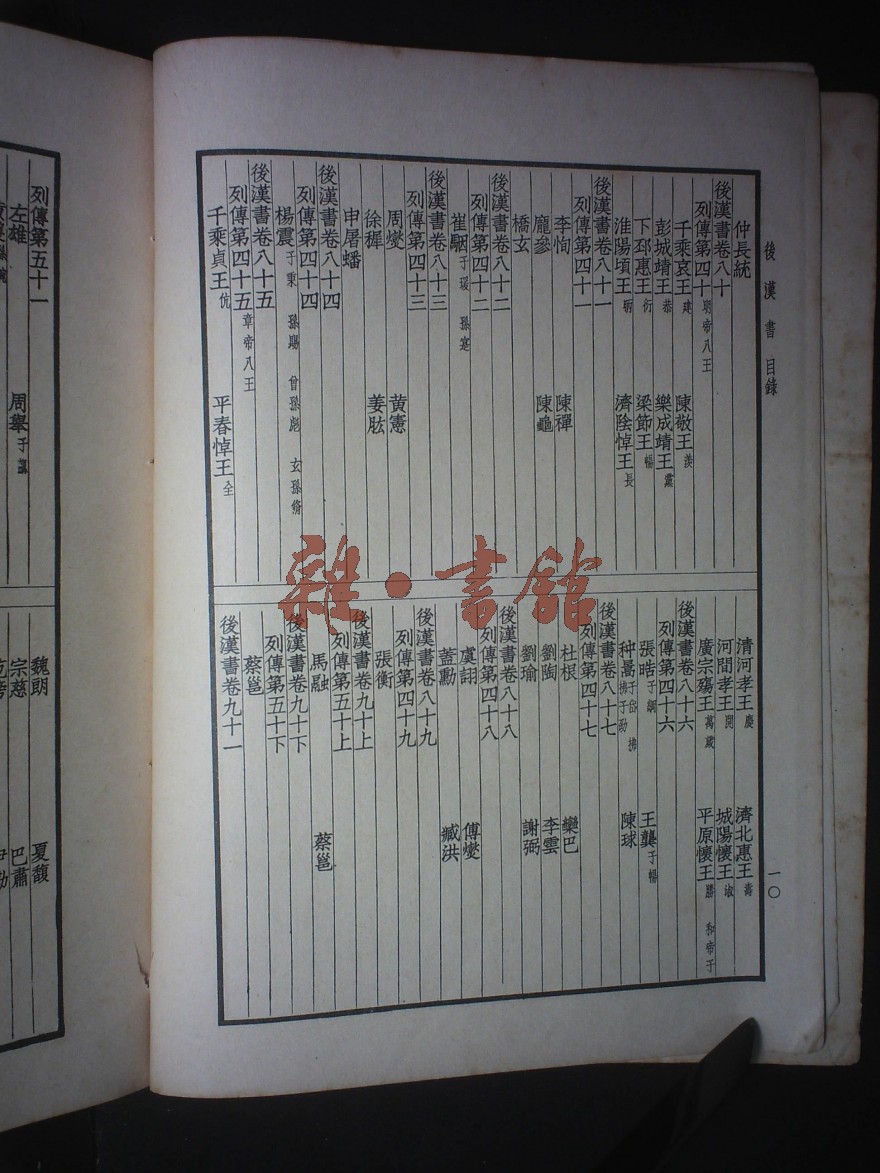 後漢書目錄
一〇
仲長統
後漢書卷八十
列傳第四十 明帝八王
千乘哀王 建 陳敬王 羨
彭城靖王 恭 樂成靖王 黨
下邳惠王 衍 梁節王 暢
淮陽頃王 昞 濟陰悼王 長
後漢書卷八十一
列傳第四十一
李恂 陳禪
龐參 陳龜
橋玄
後漢書卷八十二
列傳第四十二
崔駰 子瑗 孫寔
後漢書卷八十三
列傳第四十三
周燮 黃憲
徐穉 姜肱
申屠蟠
後漢書卷八十四
列傳第四十四
楊震 子秉 孫賜 曾孫彪 玄孫脩
後漢書卷八十五
列傳第四十五 章帝八王
千乘貞王 伉 平春悼王 全
清河孝王 慶 濟北惠王 壽
河間孝王 開 城陽懷王 淑
廣宗殤王 萬歲 平原懷王 勝 和帝子
後漢書卷八十六
列傳第四十六
張晧 子綱 王龔 子暢
种暠 子岱 拂 拂子劭 陳球
後漢書卷八十七
列傳第四十七
杜根 欒巴
劉陶 李雲
劉瑜 謝弼
後漢書卷八十八
列傳第四十八
虞詡 傅燮
蓋勳 臧洪
後漢書卷八十九
列傳第四十九
張衡
後漢書卷九十上
列傳第五十上
馬融 蔡邕
後漢書卷九十下
列傳第五十下
蔡邕
後漢書卷九十一
列傳第五十一
左雄 周舉 子勰
魏朗 夏馥
宗慈 巴肅
雜·書館